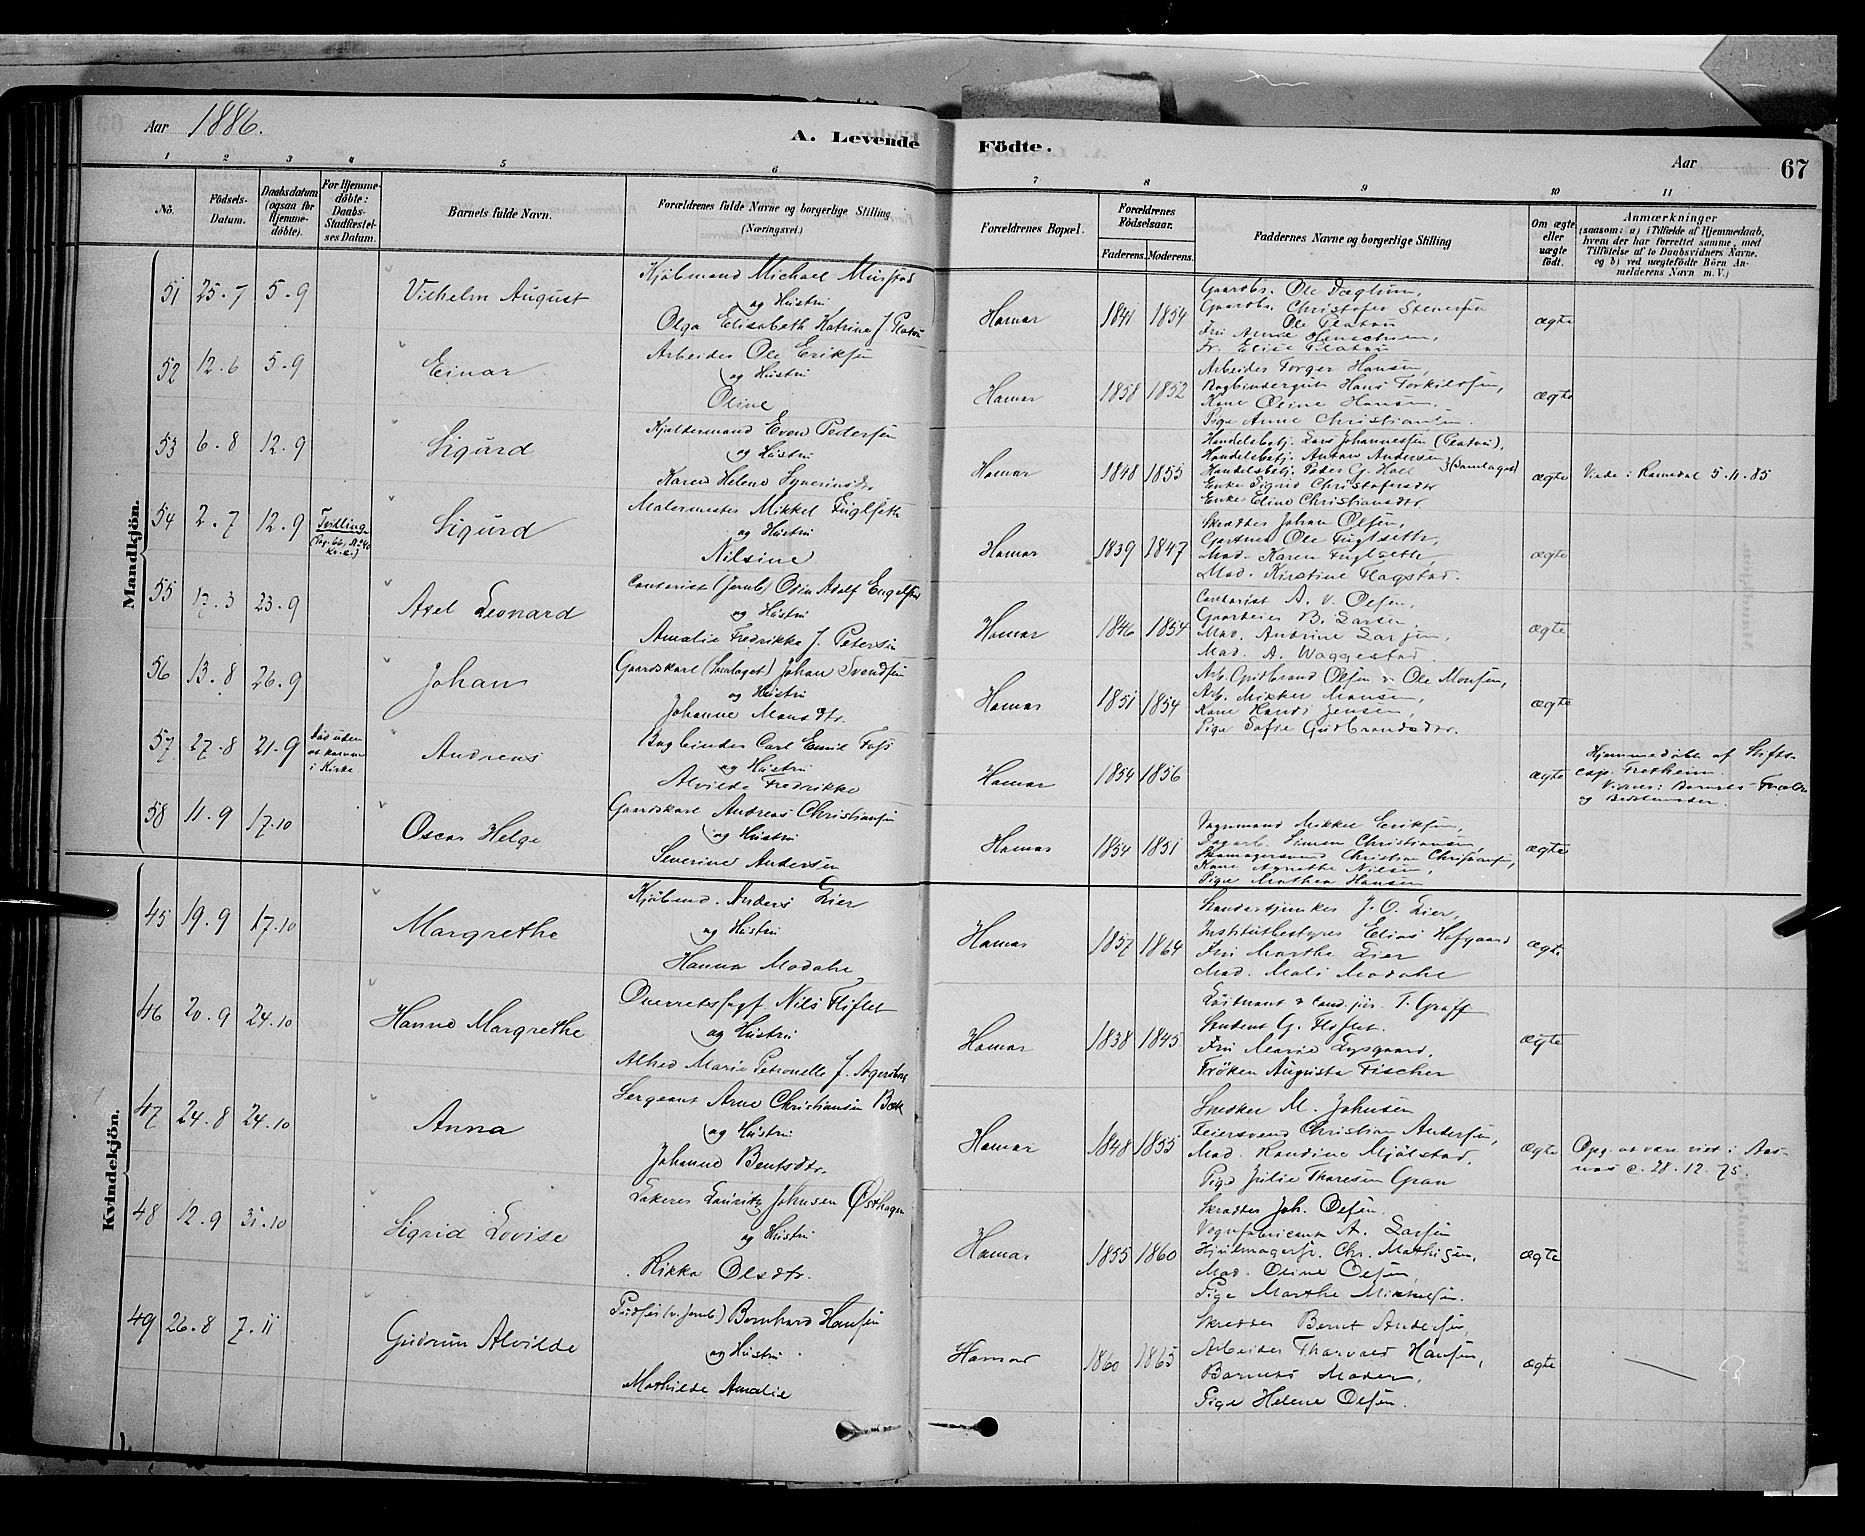 Aar 1886.
A. Levende
Födte.
Aar
67
1 2 3 4 5 6 7 8 9 10 11
No.
Födsels-Datum.
Daabsdatum (ogsaa for Hjemme-döbte).
For Hjemme-döbte: Daabs-Stadfæstel-ses Datum.
Barnets fulde Navn.
Forældrenes fulde Navne og borgerlige Stilling (Næringsvei.)
Forældrenes Bopæl.
Forældrenes Födselsaar.
Faderens. Moderens.
Faddernes Navne og borgerlige Stilling
Om ægte eller uægte födt.
Anmærkninger
(saasom: a) i Tilfælde af Hjemmedaab,
hvem der har forrettet samme, med
Tilföielse af to Daabsvidners Navne.
og b) ved uægtefödte Börn An-
melderens Navn m. V.)
Mandkjön.
51 25.7 5.9 Vilhelm August
Kjöbmand Michael Mustad
og Hustru
Olga Elisabeth Katrine f. Platou
Hamar 1841 1854
Gaardbr. Ole Dæglum,
Gaardbr. Christofer Stenersen
Ole Platou
Fr. Elise Platou
ægte
52 12.6 5.9 Einar
Arbeider Ole Eriksen
og Hustru
Oline
Hamar 1858 1852
Arbeider Torger Hansen,
Bogbindersv. Hans Torkildsen,
Kone Oline Hansen,
Pige Anne Christiansen.
ægte
53 6.8 12.9 Sigurd
Kjeldermand Even Pedersen
og Hustru
Karen Helene Syverinsdtr
Hamar 1848 1855
Handelsbetj. Lars Johannessen (Platou),
Handelsbetj. Anton Andersen
Handelsbetj. Peder G. Holl (Samlaget)
Enke Sigrid Christofersdtr
Enke Eline Christiansdtr
ægte
Viede i Romedal 5.11.85
54 2.7 12.9
Tvilling
(Pag. 66, No 40
Kv.k.)
Sigurd
Malermester Mikkel Fuglseth
og Hustru
Nilsine
Hamar 1839 1847
Skrædder Johan Olsen,
Gartner Ole Fuglseth,
Mad. Karen Fuglseth,
Mad. Kirstine Flagstad.
ægte
55 17.3 23.9 Axel Leonard
Contorist (Jernb) Odin Adolf Engelsen
og Hustru
Amalie Fredrikke f. Petersen
Hamar 1846 1854
Contorist A. V. Olsen,
Gaardeier B. Larsen,
Mad. Andrine Larsen,
Mad. A. Waggestad.
ægte
56 13.8 26.9 Johan
Gaardskarl (Samlaget) Johan Svendsen
og Hustru
Johanne Monsdtr.
Hamar 1851 1854
Arb. Gudbrand Olsen & Ole Monsen,
Arb. Mikkel Monsen,
Kone Handi Jensen,
Pige Sofie Gudbrandsdtr.
ægte
57 27.8 21.9
Död uden
at komme
i Kirke
Andreas
Bogbinder Carl Emil Foss
og Hustru
Alvilde Fredrikke
Hamar 1854 1856
ægte
Hjemmedöbt af Stifts-
cap. Fretheim.
Vidner: Barnets Foræld.
og Bedstemoder.
58 11.9 17.10 Oscar Helge
Gaardskarl Andreas Christiansen
og Hustru
Severine Andersen
Hamar 1854 1851
Sagmand Mikkel Eriksen,
Sagarb. Simen Christiansen,
Skomagersvend Christian Christiansen,
Kone Agnethe Nilsen,
Pige Mathea Hansen
ægte
Kvindekjön.
45 19.9 17.10 Margrethe
Kjöbmd. Anders Lier
og Hustru
Hanna Modahl
Hamar 1857 1864
Standartjunker J. O. Lier,
Institutbestyrer Elias Hofgaard
Fru Marthe Lier
Mad. Mali Modahl
ægte
46 20.9 24.10 Hanne Margrethe
Overretssagf Nils Fliflet
og Hustru
Alhed Marie Petronelle f. Agersborg
Hamar 1838 1845
Löitnant & Cand. jur. T. Graff
Student G. Fliflet.
Fru Marie Lysgaard,
Fröken Augusta Fischer
ægte
47 24.8 24.10 Anna
Sergeant Arne Christiansen Bæk
og Hustru
Johanne Bentsdtr.
Hamar 1848 1855
Snedker M. Johnsen
Feiersvend Christian Andersen,
Mad. Randine Mjölstad,
Pige Julie Thoresen Gran
ægte
Opg. at være viet i Aas-
nas c. 28.12.75.
48 12.9 31.10 Sigrid Lovise
Lakerer Lauritz Johnsen Østhagen
og Hustru
Rikka Olsdtr.
Hamar 1855 1860
Skrædder Joh. Olsen.
Vognfabricant A. Larsen
Hjulmagersv. Chr. Mathisen,
Mad. Oline Olsen,
Pige Marthe Mikkelsen.
ægte
49 26.8 7.11 Gudrun Alvilde
Pudser (v. Jernb) Bernhard Hansen
og Hustru
Mathilde Amalie
Hamar 1860 1865
Skrædder Bernt Andersen,
Arbeider Thorvald Hansen,
Barnets Moder,
Pige Helene Olsen.
ægte